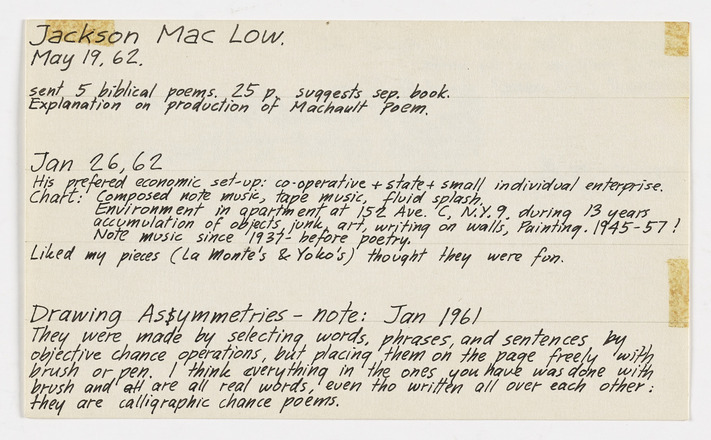 Jackson Mac Low.
May 19, 62.
sent 5 biblical poems. 25 p. suggests sep. book.
Explanation on production of Machault Poem.
Jan 26, 62
His prefered economic set-up: co-operative + state + small individual enterprise.
Chart: Composed note music, tape music, fluid splash.
Environment in apartment at 152 Ave. C, N.Y. 9, during 13 years
accumulation of objects, junk, art, writing on walls, Painting. 1945-57!
Note music since 1937- before poetry.
Liked my pieces (La Monte's & Yoko's) thought they were fun.
Drawing Assymmetries - note: Jan 1961
They were made by selecting words, phrases, and sentences by
objective chance operations, but placing them on the page freely with
brush or pen. I think everything in the ones you have was done with
brush and all are all real words, even tho written all over each other:
they are calligraphic chance poems.